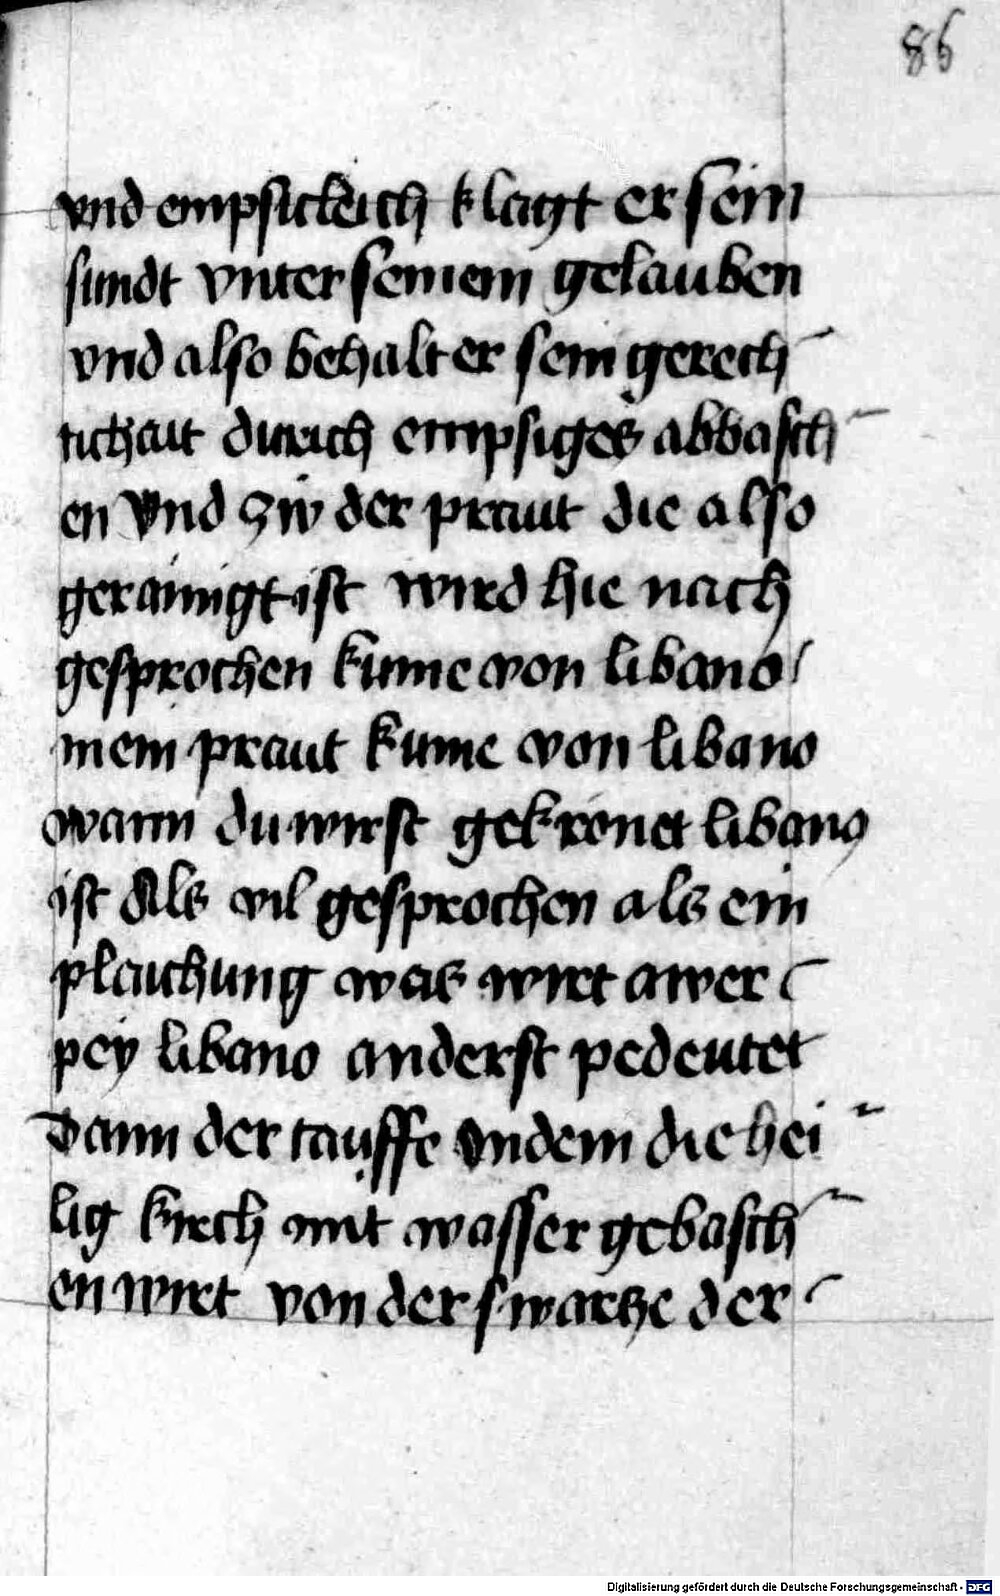 86
vnd empsicleich klagt er sein
sundt vnter seinem gelauben
vnd also behalt er sein gerech
tichait durich empsiges abbasch
en Vnd zw der praut die also
gerainigt ist wird hie nach
gesprochen kume von libano
mein praut kume von libano
wann du wirst gekronet libano
ist Als vil gesprochen als ein
plaichung was wirt awer
pey libano anderst pedeutet
Dann der tauffe Vndem die hei
lig kirch mit wasser gebasch
en wirt von der swartze der
Digitalisierung gefördert durch die Deutsche Forschungsgemeinschaft - DFG